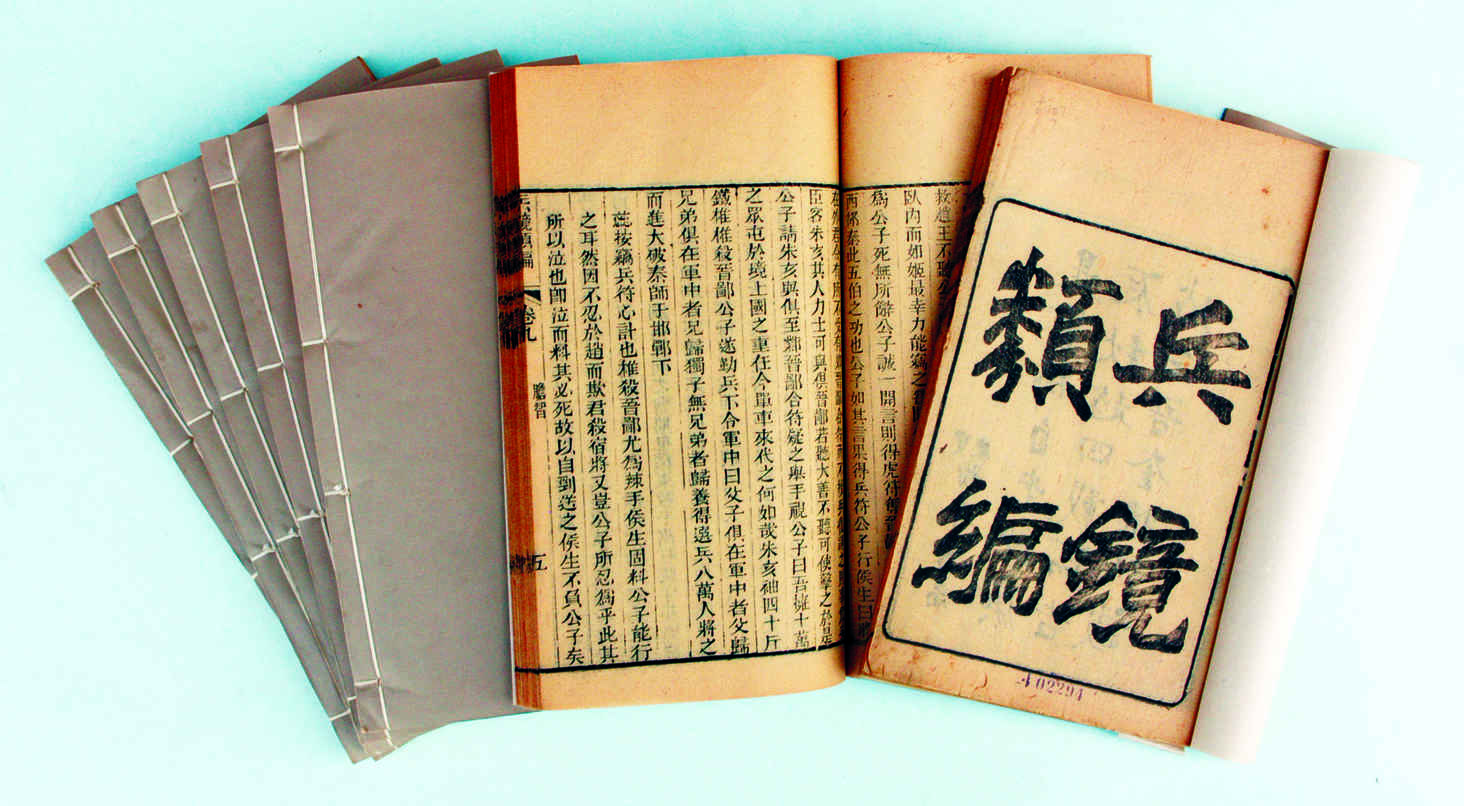 兵鏡
類編
A02294
救趙王不聽公
臥内而如姬最幸力能竊之
爲公子死無所辭公子誠一開言則得虎符奪晉鄙
西卻秦此五伯之功也公子如其言果得兵符公子行侯生曰將
臣客朱亥其人力士可與俱晉鄙若聽大善不聽可使擊之於是
公子請朱亥與俱至鄴晉鄙合符疑之舉手視公子曰吾擁十萬
之眾屯於境上國之重任今單車來代之何如哉朱亥袖四十斤
鐵椎椎殺晉鄙公子遂勒兵下令軍中曰父子俱在軍中者父歸
兄弟俱在軍中者兄歸獨子無兄弟者歸養得選兵八萬人將之
而進大破秦師于邯鄲下
按竊兵符心計也椎殺晉鄙尤爲辣手侯生固料公子能行
之耳然因不忍於趙而欺君殺宿將又豈公子所忍爲乎此其
所以泣也卽泣而料其必死故以自剄送之侯生不負公子矣
兵鏡類編 卷九 膽智 五